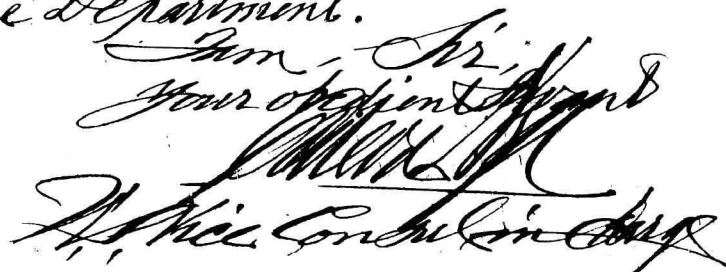 e Department.
I am, Sir,
Your obedient Servant
U.S. Vice Consul in Charge